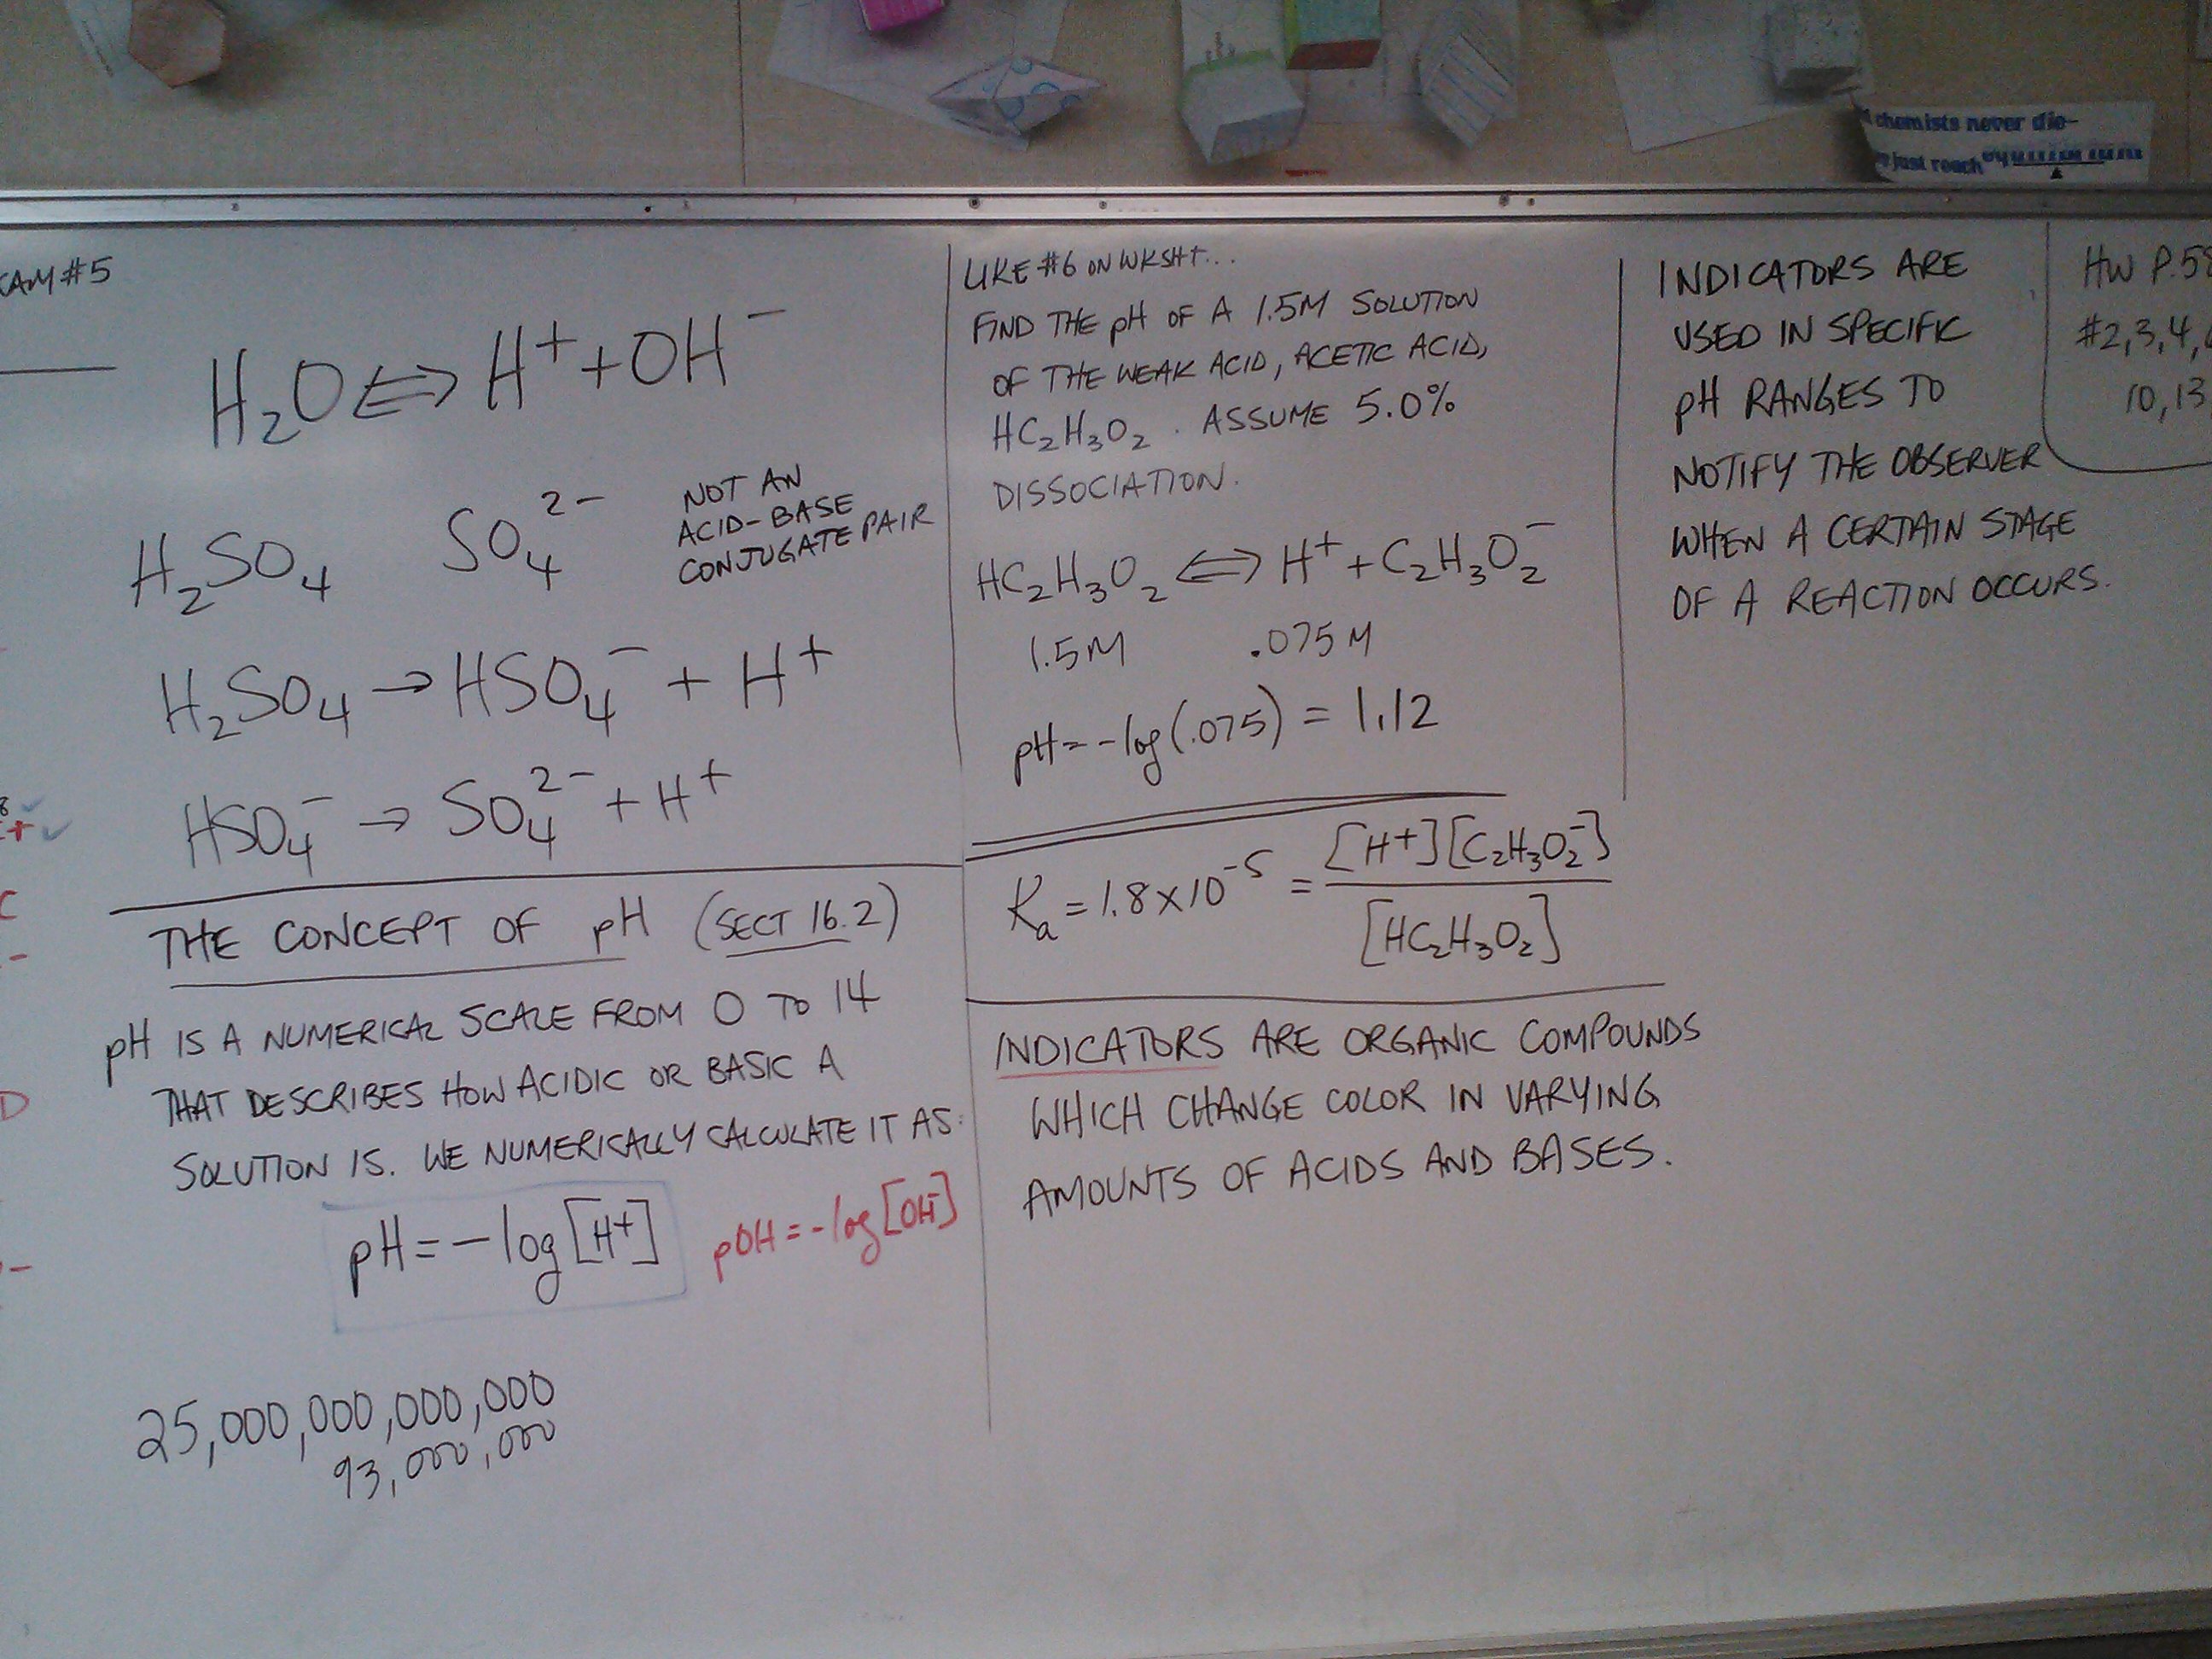 chemists never die-
just reach
#5
H₂O ⇔ H⁺ + OH⁻
H₂SO₄ SO₄²⁻
NOT AN
ACID-BASE
CONJUGATE PAIR
H₂SO₄ → HSO₄⁻ + H⁺
HSO₄⁻ → SO₄²⁻ + H⁺
THE CONCEPT OF pH (SECT 16.2)
pH IS A NUMERICAL SCALE FROM 0 TO 14
THAT DESCRIBES HOW ACIDIC OR BASIC A
SOLUTION IS. WE NUMERICALLY CALCULATE IT AS:
pH = -log[H⁺] pOH = -log[OH⁻]
25,000,000,000,000
93,000,000
LIKE #6 ON WKSHT...
FIND THE pH OF A 1.5M SOLUTION
OF THE WEAK ACID, ACETIC ACID,
HC₂H₃O₂. ASSUME 5.0%
DISSOCIATION.
HC₂H₃O₂ ⇔ H⁺ + C₂H₃O₂⁻
1.5M .075M
pH = -log(.075) = 1.12
Ka = 1.8x10⁻⁵ = [H⁺][C₂H₃O₂⁻]
[HC₂H₃O₂]
INDICATORS ARE ORGANIC COMPOUNDS
WHICH CHANGE COLOR IN VARYING
AMOUNTS OF ACIDS AND BASES.
INDICATORS ARE
USED IN SPECIFIC
pH RANGES TO
NOTIFY THE OBSERVER
WHEN A CERTAIN STAGE
OF A REACTION OCCURS.
HW P.58
#2,3,4,
10,13